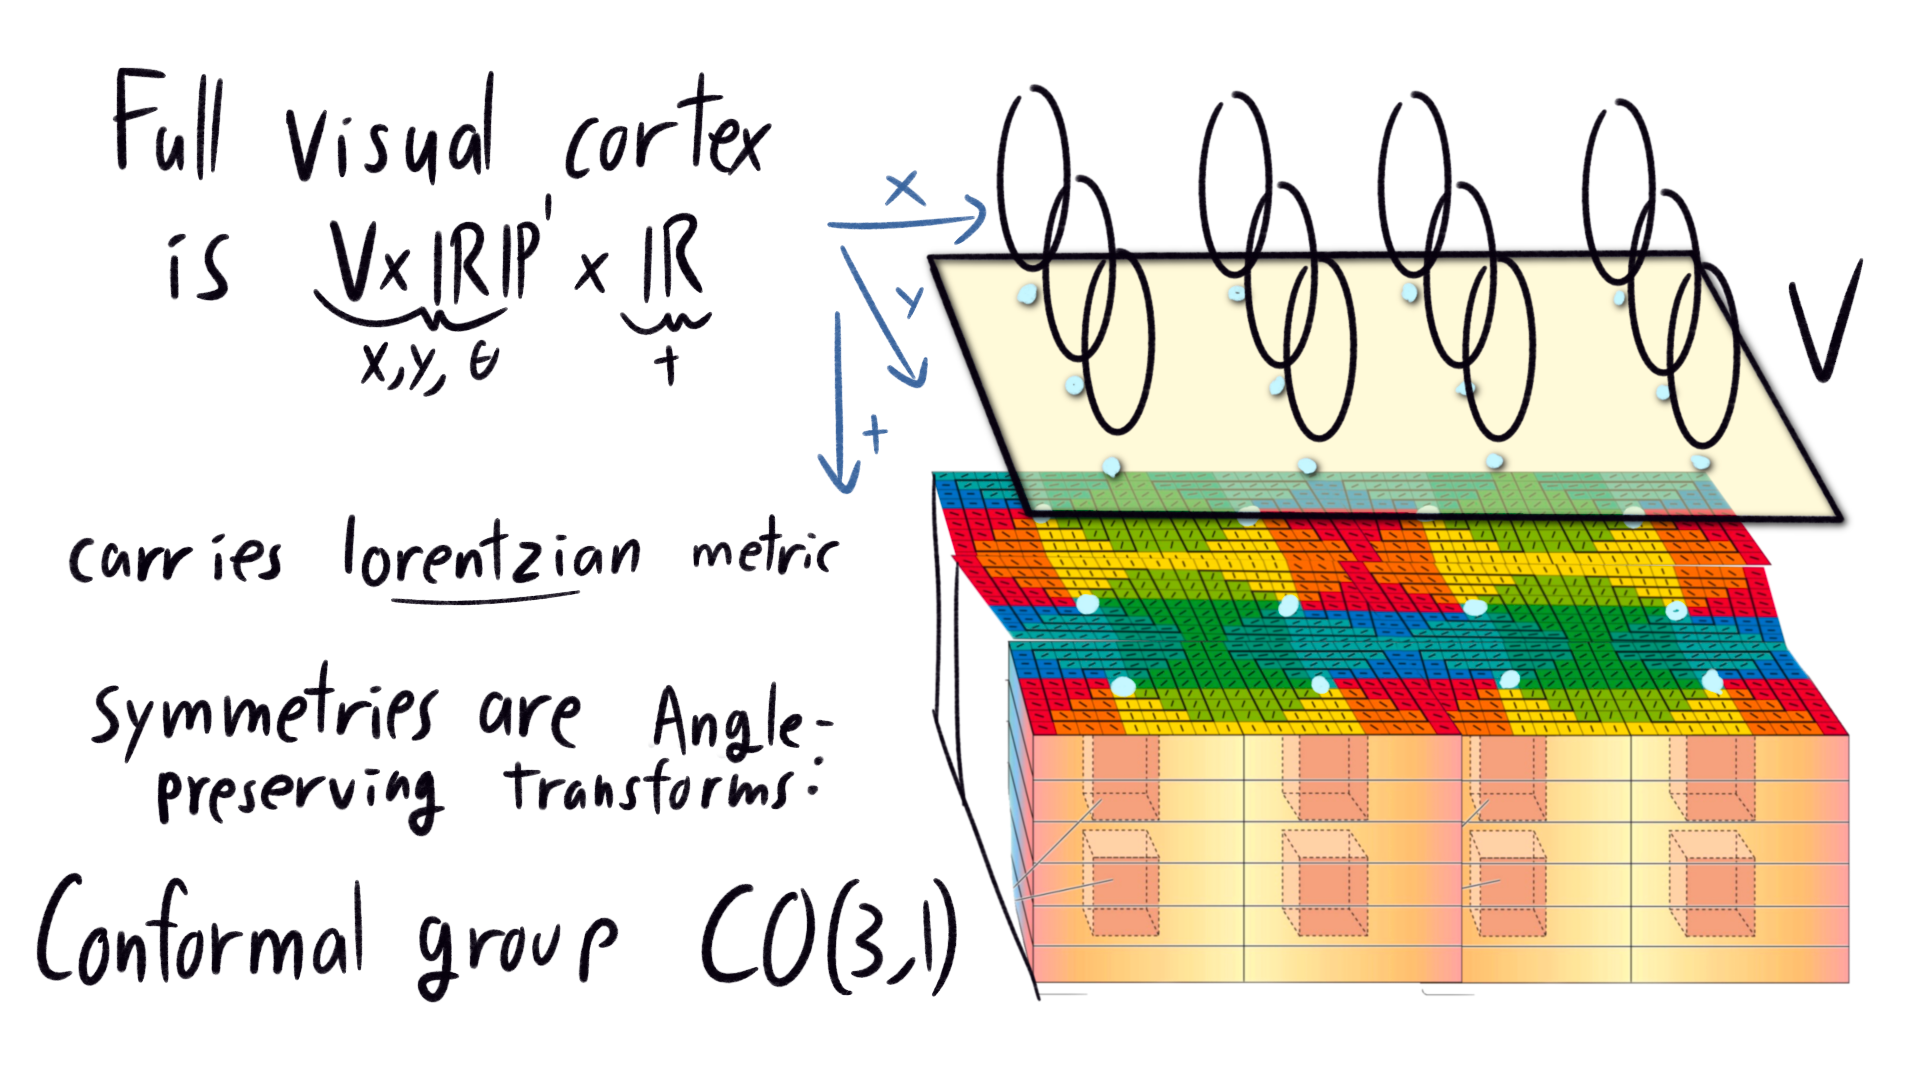 Full visual cortex
is V x ℝℙ¹ x ℝ
x, y, θ
t
carries lorentzian metric
symmetries are Angle-
preserving transforms:
Conformal group CO(3,1)
x
y
t
V